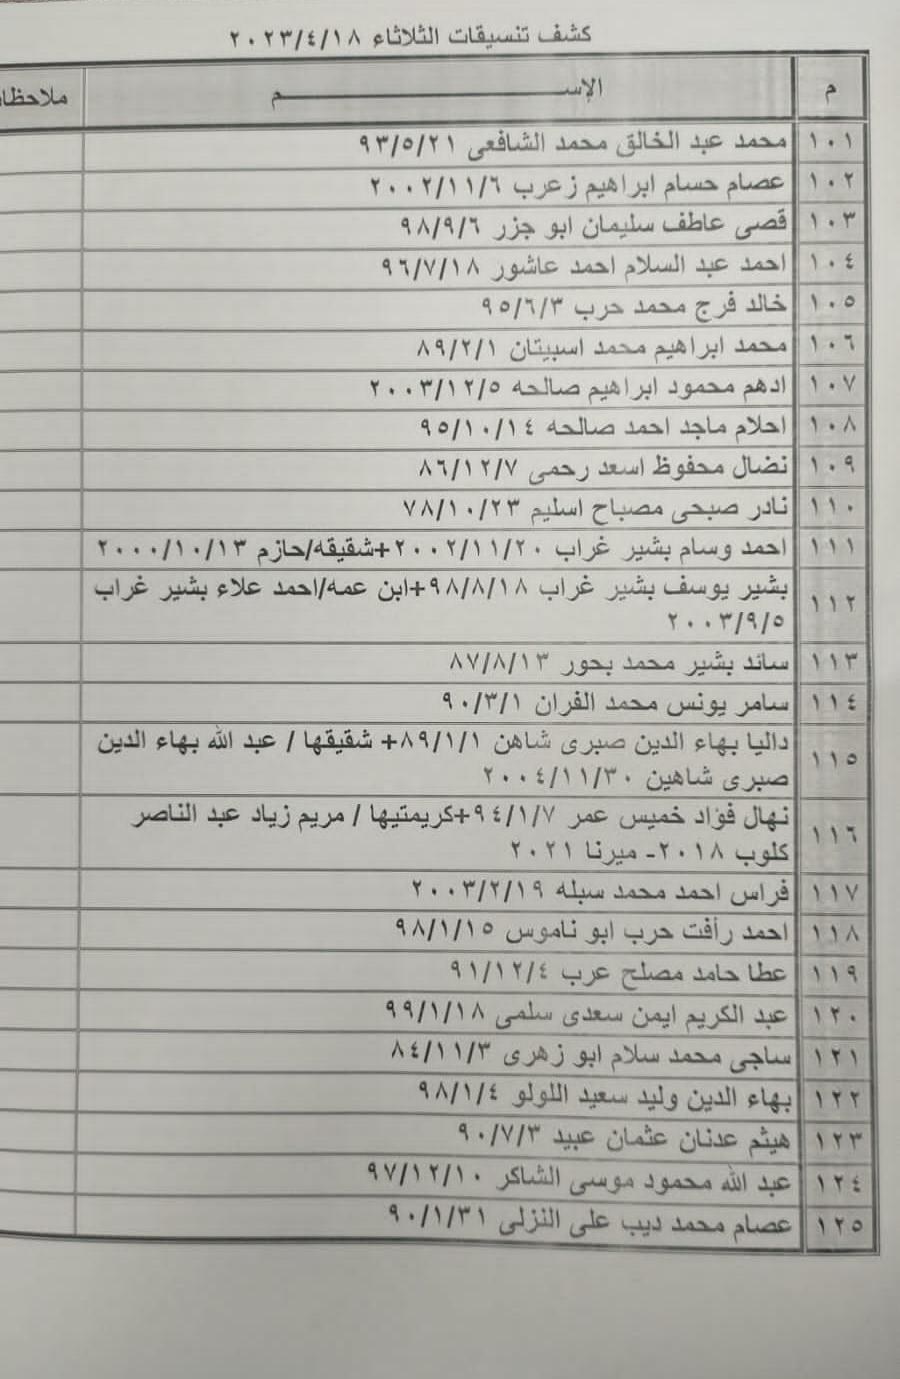 كشف تنسيقات الثلاثاء ٢٠٢٣/٤/١٨
م الإســـــــــــــــــــــم ملاحظا
١٠١ محمد عبد الخالق محمد الشافعى ٩٣/٥/٢١
١٠٢ عصام حسام ابراهيم زعرب ٢٠٠٢/١١/٦
١٠٣ قصى عاطف سليمان ابو جزر ٩٨/٩/٦
١٠٤ احمد عبد السلام احمد عاشور ٩٦/٧/١٨
١٠٥ خالد فرج محمد حرب ٩٥/٦/٣
١٠٦ محمد ابراهيم محمد اسبيتان ٨٩/٢/١
١٠٧ ادهم محمود ابراهيم صالحه ٢٠٠٣/١٢/٥
١٠٨ احلام ماجد احمد صالحه ٩٥/١٠/١٤
١٠٩ نضال محفوظ اسعد رحمى ٨٦/١٢/٧
١١٠ نادر صبحى مصباح اسليم ٧٨/١٠/٢٣
١١١ احمد وسام بشير غراب ٢٠٠٢/١١/٢٠+شقيقه/حازم ٢٠٠٠/١٠/١٣
١١٢ بشير يوسف بشير غراب ٩٨/٨/١٨+ابن عمه/احمد علاء بشير غراب
٢٠٠٣/٩/٥
١١٣ سائد بشير محمد بحور ٨٧/٨/١٣
١١٤ سامر يونس محمد الفران ٩٠/٣/١
١١٥ داليا بهاء الدين صبرى شاهن ٨٩/١/١+ شقيقها / عبد الله بهاء الدين
صبرى شاهين ٢٠٠٤/١١/٣٠
١١٦ نهال فؤاد خميس عمر ٩٤/١/٧+كريمتيها / مريم زياد عبد الناصر
كلوب ٢٠١٨- ميرنا ٢٠٢١
١١٧ فراس احمد محمد سبله ٢٠٠٣/٢/١٩
١١٨ احمد رأفت حرب ابو ناموس ٩٨/١/١٥
١١٩ عطا حامد مصلح عرب ٩١/١٢/٤
١٢٠ عبد الكريم ايمن سعدى سلمى ٩٩/١/١٨
١٢١ ساجى محمد سلام ابو زهرى ٨٤/١١/٣
١٢٢ بهاء الدين وليد سعيد اللولو ٩٨/١/٤
١٢٣ هيثم عدنان عثمان عبيد ٩٠/٧/٣
١٢٤ عبد الله محمود موسى الشاكر ٩٧/١٢/١٠
١٢٥ عصام محمد ديب على النزلى ٩٠/١/٣١